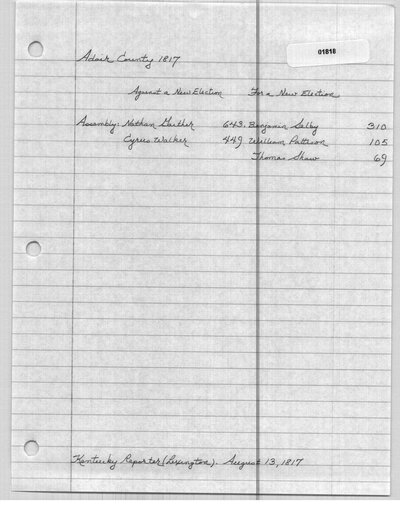 01818
Adair County 1817
Against a New Election For a New Election
Assembly: Nathan Gaither 643. Benjamin Selby 310
Cyrus Walker 449 William Patteson 105
Thomas Shaw 69
Kentucky Reporter (Lexington). August 13, 1817